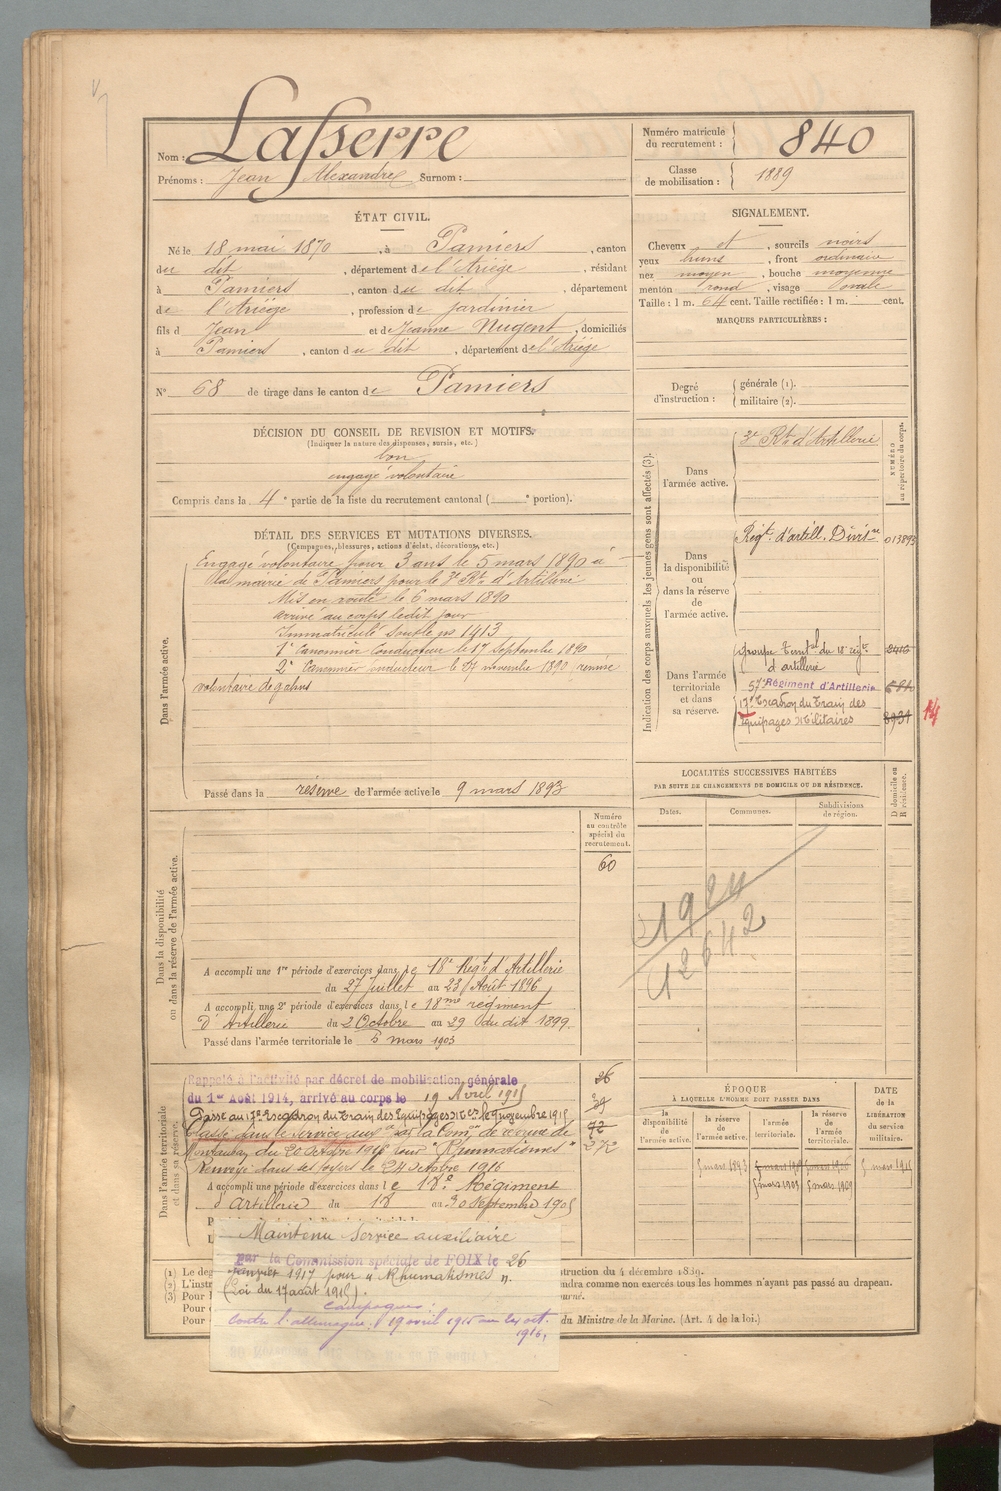 Nom : Lasserre
Prénoms : Jean Alexandre Surnom :
Numéro matricule du recrutement : 840
Classe de mobilisation : 1889
ÉTAT CIVIL.
Né le 18 mai 1870, à Pamiers, canton
du dit, département de l'Ariège, résidant
à Pamiers, canton du dit, département
de l'Ariège, profession de jardinier
fils d Jean et de Jeanne Nugent, domiciliés
à Pamiers, canton du dit, département de l'Ariège
N° 68 de tirage dans le canton de Pamiers
SIGNALEMENT.
Cheveux et, sourcils noirs
yeux bruns, front ordinaire
nez moyen, bouche moyenne
menton rond, visage ovale
Taille : 1 m. 64 cent. Taille rectifiée : 1 m. cent.
MARQUES PARTICULIÈRES :
Degré d'instruction : générale (1).
militaire (2).
DÉCISION DU CONSEIL DE REVISION ET MOTIFS.
(Indiquer la nature des dispenses, sursis, etc.)
bon
engagé volontaire
Compris dans la 4e partie de la liste du recrutement cantonal ( e portion).
DÉTAIL DES SERVICES ET MUTATIONS DIVERSES.
(Campagnes, blessures, actions d'éclat, décorations, etc.)
Dans l'armée active.
Engagé volontaire pour 3 ans le 5 mars 1890 à
la mairie de Pamiers pour le 3e Rt d'Artillerie
Mis en route le 6 mars 1890
arrivé au corps ledit jour
Immatriculé sous le no 1413
1e Canonnier Conducteur le 17 Septembre 1890
2e Canonnier conducteur le 27 novembre 1890 remise
volontaire de galons
Passé dans la réserve de l'armée active le 9 mars 1893
Indication des corps auxquels les jeunes gens sont affectés (3).
NUMÉRO au répertoire du corps.
Dans l'armée active.
3e Rt d'Artillerie
Dans la disponibilité ou dans la réserve de l'armée active.
Régt. d'artill. Divisre 013893
Dans l'armée territoriale et dans sa réserve.
groupe territal du 18e régt.
d'artillerie
57e Régiment d'Artillerie
17e Escadron du Train des
Equipages Militaires
14
LOCALITÉS SUCCESSIVES HABITÉES
PAR SUITE DE CHANGEMENTS DE DOMICILE OU DE RÉSIDENCE.
Dates. Communes. Subdivisions de région.
D domicile ou R résidence.
Dans la disponibilité ou dans la réserve de l'armée active.
Numéro au contrôle spécial du recrutement.
60
A accompli une 1re période d'exercices dans le 18e Régt d'Artillerie
du 27 Juillet au 23 Août 1896
A accompli une 2e période d'exercices dans le 18me régiment
d'Artillerie du 2 Octobre au 29 du dit 1899
Passé dans l'armée territoriale le 5 mars 1903
Dans l'armée territoriale et dans sa réserve.
Rappelé à l'activité par décret de mobilisation générale
du 1er Août 1914, arrivé au corps le 19 Avril 1915
Passe au 17e Escadron du Train des Equipages Mres le 9 novembre 1915
Classé dans le service auxre par la Comon de réforme de
Montauban du 20 Octobre 1916 pour "Rhumatismes"
Renvoyé dans ses foyers le 24 octobre 1916
A accompli une période d'exercices dans le 18e Régiment
d'artillerie du 18 au 30 Septembre 1905
26
72
272
Maintenu Service auxiliaire
par la Commission spéciale de FOIX le 26
Janvier 1917 pour "Rhumatismes".
(Loi du 17 août 1915).
Campagnes :
Contre l'allemagne : 19 avril 1915 au 24 oct.
1916.
ÉPOQUE
À LAQUELLE L'HOMME DOIT PASSER DANS
la disponibilité de l'armée active.
la réserve de l'armée active.
l'armée territoriale.
la réserve de l'armée territoriale.
DATE de la LIBÉRATION du service militaire.
5 mars 1893
5 mars 1903 5 mars 1909
5 mars 1915
(1) Le deg
struction du 4 décembre 1889.
(2) L'instr
endra comme non exercés tous les hommes n'ayant pas passé au drapeau.
(3) Pour l
Pour
Pour
du Ministre de la Marine. (Art. 4 de la loi.)